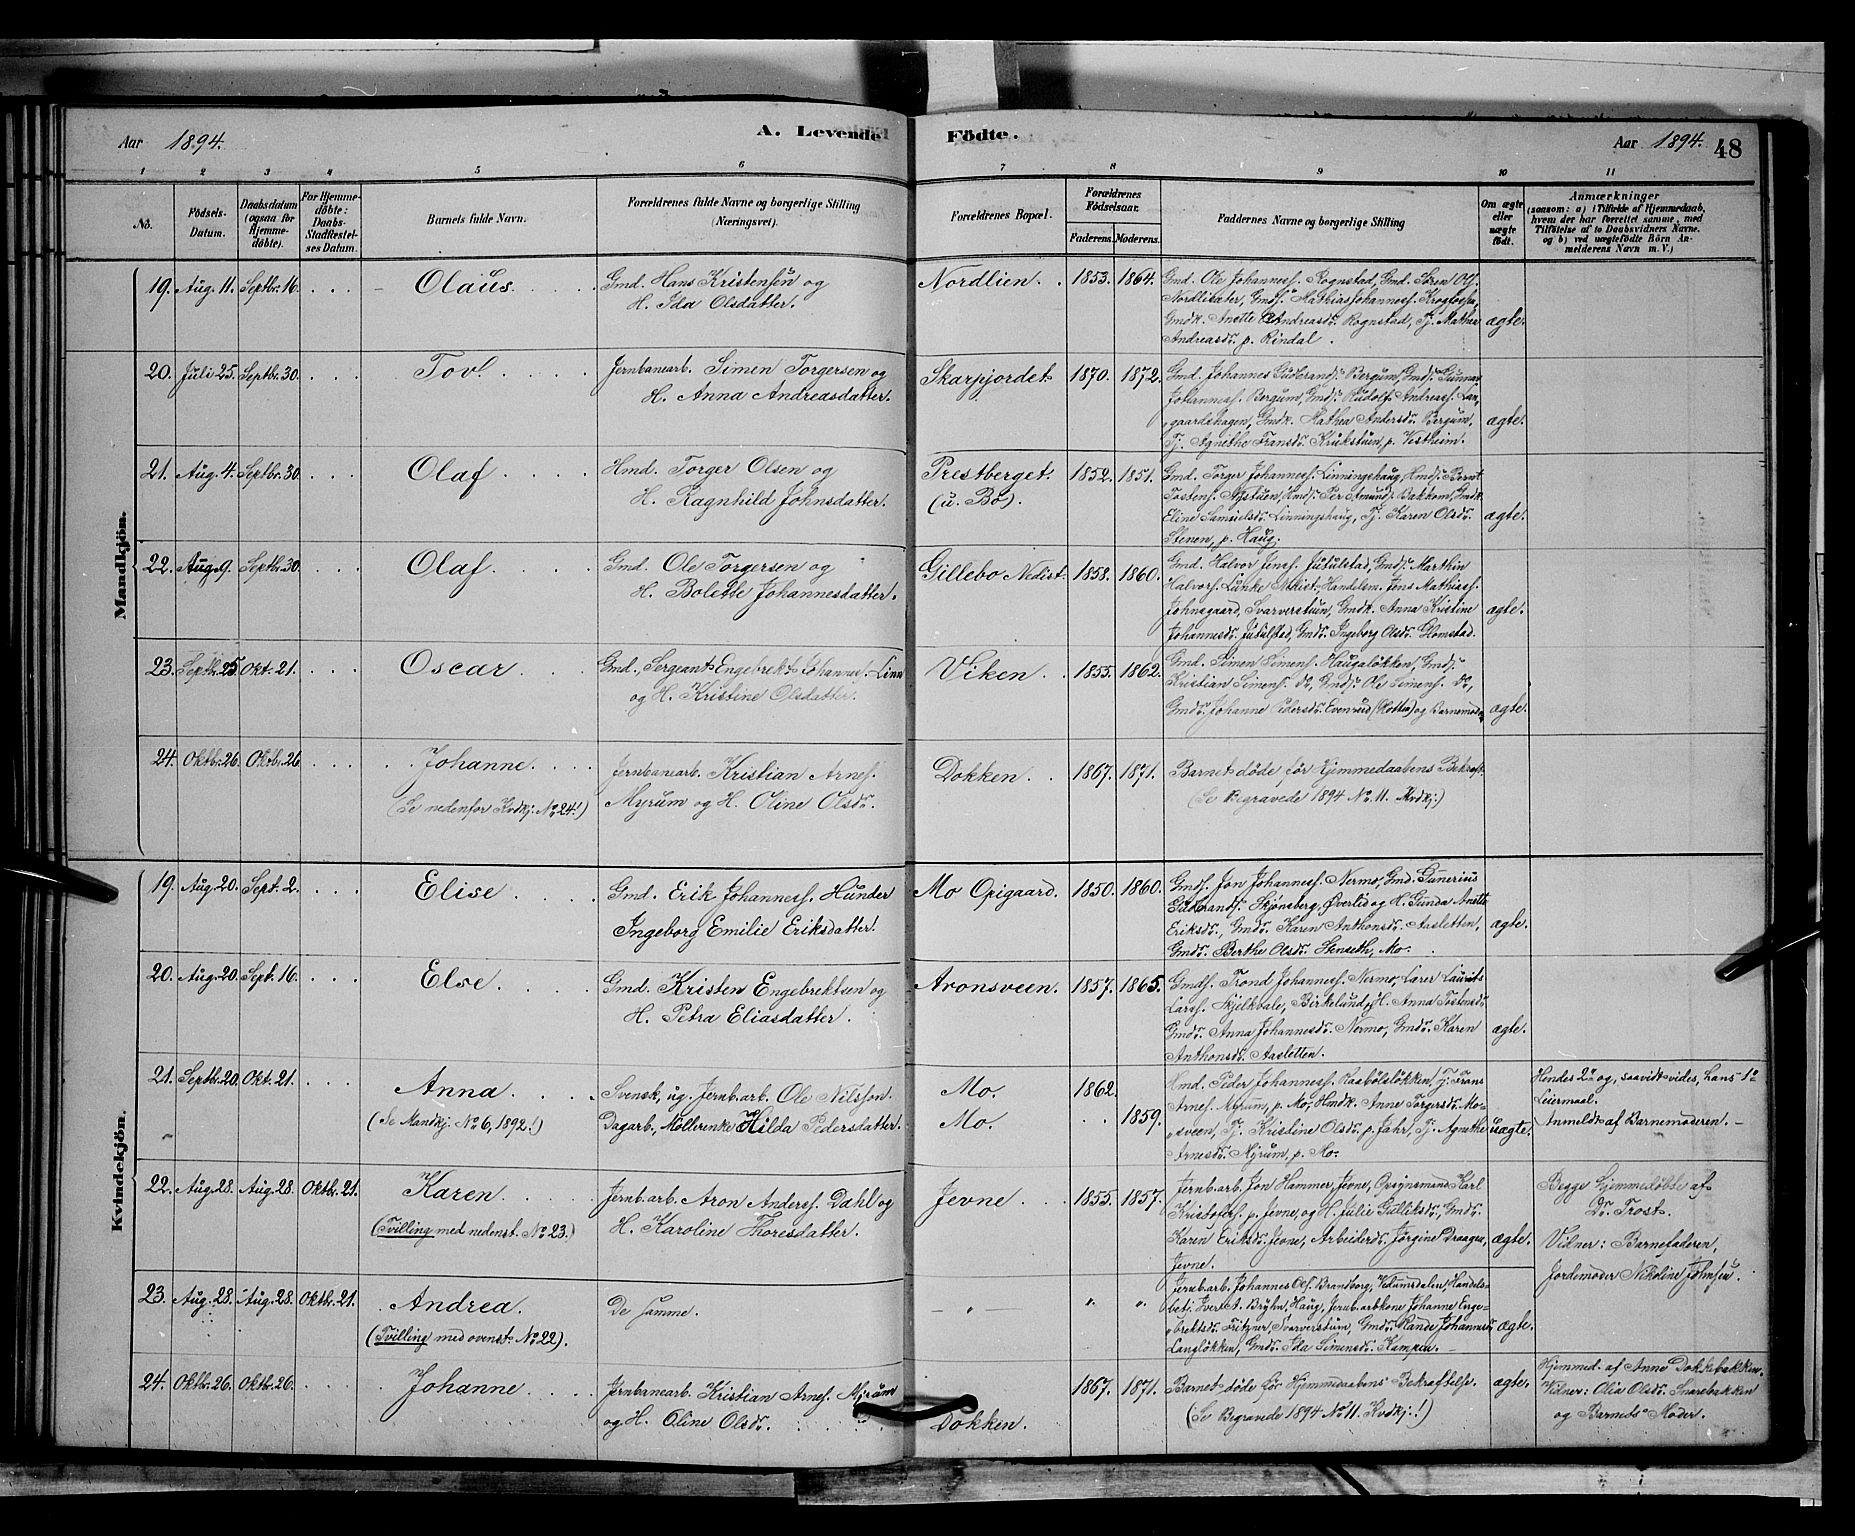 Aar 1894. A. Levende Födte. Aar 1894. 48
1 2 3 4 5 6 7 8 9 10 11
No. Födsels-Datum. Daabsdatum (ogsaa for Hjemme-döbte). For Hjemme-döbte: Daabs-Stadfæstel-ses Datum. Barnets fulde Navn. Forældrenes fulde Navne og borgerlige Stilling (Næringsvei). Forældrenes Bopæl. Forældrenes Födselsaar. Faderens. Moderens. Faddernes Navne og borgerlige Stilling Om ægte eller uægte födt. Anmærkninger
(saasom: a) i Tilfælde af Hjemmedaab,
hvem der har forrettet samme, med
Tilföielse af to Daabsvidners Navne.
og b) ved uægtefödte Börn An-
melderens Navn m. V.)
Mandkjön.
19. Aug. 11. Septbr. 16. Olaus. Gmd. Hans Kristensen og
H. Ida Olsdatter.
Nordlien. 1853. 1864.
Gmd. Ole Johanness. Rognstad, Gmd. Sören Ols.
Gmdk. Anette Andreasdr. Rognstad, Tj. Mathea
Andreasdr. p. Rindal.
ægte.
20. Juli 25. Septbr. 30. Tov. Jernbanearb. Simen Torgersen og
H. Anna Andreasdatter.
Skarpjordet. 1870. 1872.
Gmd. Johannes Gudbrands. Bergum, Gmds. Gunnar
Johanness. Bergum, Gmds. Rudolf Andreass. Lan-
gaardshagen, Gmdk. Mathea Andersdr. Bergum,
Tj. Agnethe Fransdr. Krukstuen, p. Vestheim.
ægte.
21. Aug. 4. Septbr. 30. Olaf. Hmd. Torger Olsen og
H. Ragnhild Johnsdatter.
Prestberget 1852. 1851.
(u. Bø).
Gmd. Torger Johanness. Linningshaug, Hmds. Bernt
Tostens. Nystuen, Hmds. Per Amunds. Bakkom, Gmdk.
Eline Samuelsdr. Linningshaug, Tj. Karen Olsdr.
Stenen, p. Haug.
ægte.
22. Aug. 9. Septbr. 30. Olaf. Gmd. Ole Torgersen og
H. Bolette Johannesdatter.
Gillebo Nedist. 1858. 1860.
Gmd. Halvor Jens. Jutulstad, Gmds. Marthin
Halvors. Lunke Nedist, Handelsm. Jens Mathiass.
Johnsgaard, Svarverstuen, Gmdk. Anna Kristine
Johannesdr. Jutulstad, Gmds. Ingeborg Olsdr. Glomstad.
ægte.
23. Septbr. 25. Okt. 21. Oscar. Gmd., Sergeant Engebrekt Johannes. Linn
og H. Kristine Olsdatter.
Viken. 1853. 1862.
Gmd. Simen Simens. Haugaløkken, Gmds.
Kristian Simens. do, Gmds. Ole Simens. do,
Gmds. Johanne Pedersdr. Evensrud (Rotten) og Barnemoderen
ægte.
24. Oktbr. 26. Oktbr. 26. Johanne. Jernbanearb. Kristian Arnes.
(Se nedenfor Kvdkj. No 24!) Myrum og H. Oline Olsdr.
Dokken. 1867. 1871.
Barnet døde før Hjemmedaabens Bekræft.
(Se Begravede 1894 No. 11. Kvdkj.)
Kvindekjön.
19. Aug. 20. Sept. 2. Elise. Gmd. Erik Johanness. Hunder
Ingeborg Emilie Eriksdatter.
Mo Opigaard. 1850. 1860.
Gmds. Jon Johanness. Nermo, Gmd. Gunerius
Gudbrands. Skjønsberg, Øverlid og H. Gunda Anette
Eriksdr., Gmds. Karen Anthonsdr. Aasletten,
Gmds. Berthe Olsdr. Henseth, Mo.
ægte.
20. Aug. 20. Sept. 16. Else. Gmd. Kristen Engebrektsen og
H. Petra Eliasdatter.
Aronsveen. 1857. 1865.
Gmds. Trond Johanness. Nermo, Lærer Laurits
Larss. Skjelkvale, Birkelund og H. Anna Tostensdr.
Gmds. Anna Johannesdr. Nermo, Gmds. Karen
Anthonsdr. Aasletten.
ægte.
21. Septbr. 20. Okt. 21. Anna. Svensk, ug. Jernb.arb. Ole Nilsson.
(Se Mandkj. No 6, 1892!) Dagarb., Møllerenke Hilda Pedersdatter.
Mo. 1862.
Mo. 1859.
Hmd. Peder Johanness. Raabølsløkken, Tj. Frans
Arnes. Myrum, p. Mo, Hmdk. Anne Torgersdr. Mo-
sveen, Tj. Kristine Olsdr. p. Jahr, Tj. Agnethe
Arnesdr. Myrum, p. Mo.
uægte.
Hendes 2det og, saavidt vides, hans 1ste
Leiermaal.
Anmeldt af Barnemoderen.
22. Aug. 28. Aug. 28. Oktbr. 21. Karen. Jernb.arb. Aron Anderss. Dahl og
(Tvilling med nedenst. No 23.) H. Karoline Thoresdatter.
Jevne. 1855. 1857.
Jernb.arb. Jon Hammer, Jevne, Opsynsmand Karl
Kristoffers. p. Jevne, og H. Julie Gulliksdr., Gmds.
Karen Eriksdr. Jevne, Arbeiderds. Jørgine Draagen,
Jevne.
ægte.
Begge hjemmedøbte af
Dr. Trost.
Vidner: Barnefaderen,
Jordemoder Nikoline Johnsen.
23. Aug. 28. Aug. 28. Oktbr. 21. Andrea. De samme.
(Tvilling med ovenst. No 22).
— " — " "
Jernb.arb. Johannes Ols. Brandborg, Vedumsdalen, Handels-
betj. Ivert A. Bryhn, Haug, Jernb.arbkone Johanne Enge-
brektsdr. Fritzner, Svarverstuen, Gmds. Rande Johannesdr.
Langløkken, Gmds. Ida Simensdr. Kampen.
ægte.
24. Oktbr. 26. Oktbr. 26. Johanne. Jernbanearb. Kristian Arnes. Myrum
og H. Oline Olsdr.
Dokken. 1867. 1871.
Barnet døde før Hjemmedaabens Bekræftelse.
(Se Begravede 1894 No. 11. Kvdkj.!)
ægte.
Hjemmed. af Anne Dokkebakken.
Vidner: Olia Olsdr. Snarebakken
og Barnets Moder.